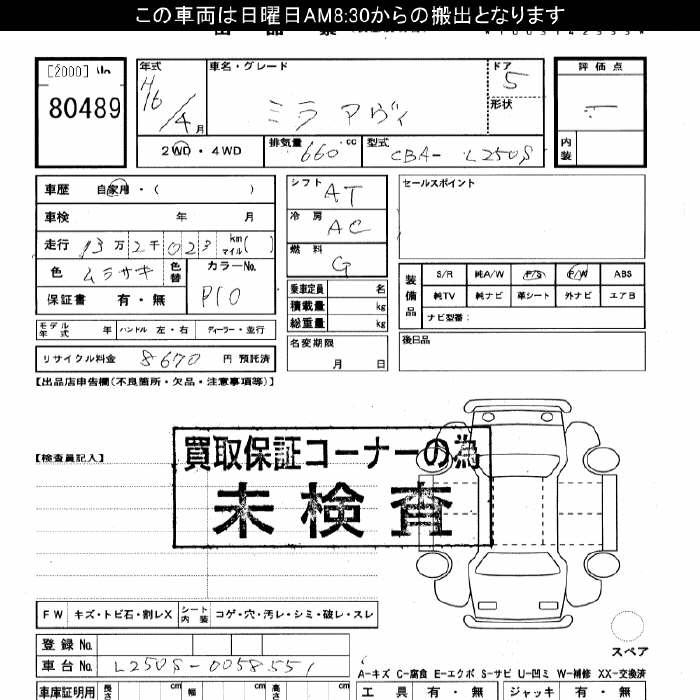 この車両は日曜日AM8:30からの搬出となります
[2000]
80489
年式
H16/4月
車名・グレード
ミラ アヴィ
ドア
5
形状
評価点
内装
2WD・4WD
排気量
660 cc
型式
CBA- L250S
車歴 自家用・( )
車検 年 月
走行 13万2千023 km マイル( )
色 ムラサキ 色替
カラーNo.
P10
保証書 有・無
シフト
AT
冷房
AC
燃料
G
乗車定員 名
積載量 kg
総重量 kg
名変期限
月 日
セールスポイント
装備品
S/R 純A/W P/S P/W ABS
純TV 純ナビ 革シート 外ナビ エアB
ナビ型番:
後日品
モデル年式 年 ハンドル 左・右 ディーラー・並行
リサイクル料金 8670 円 預託済
【出品店申告欄(不良箇所・欠品・注意事項等)】
【検査員記入】
買取保証コーナーの為
未検査
FW キズ・トビ石・割レX シート内装 コゲ・穴・汚レ・シミ・破レ・スレ
スペア
登録No.
車台No. L250S-0058551
A-キズ C-腐食 E-エクボ S-サビ U-凹ミ W-補修 XX-交換済
車庫証明用 長さ cm 幅 cm 高さ cm
工具 有・無 ジャッキ 有・無